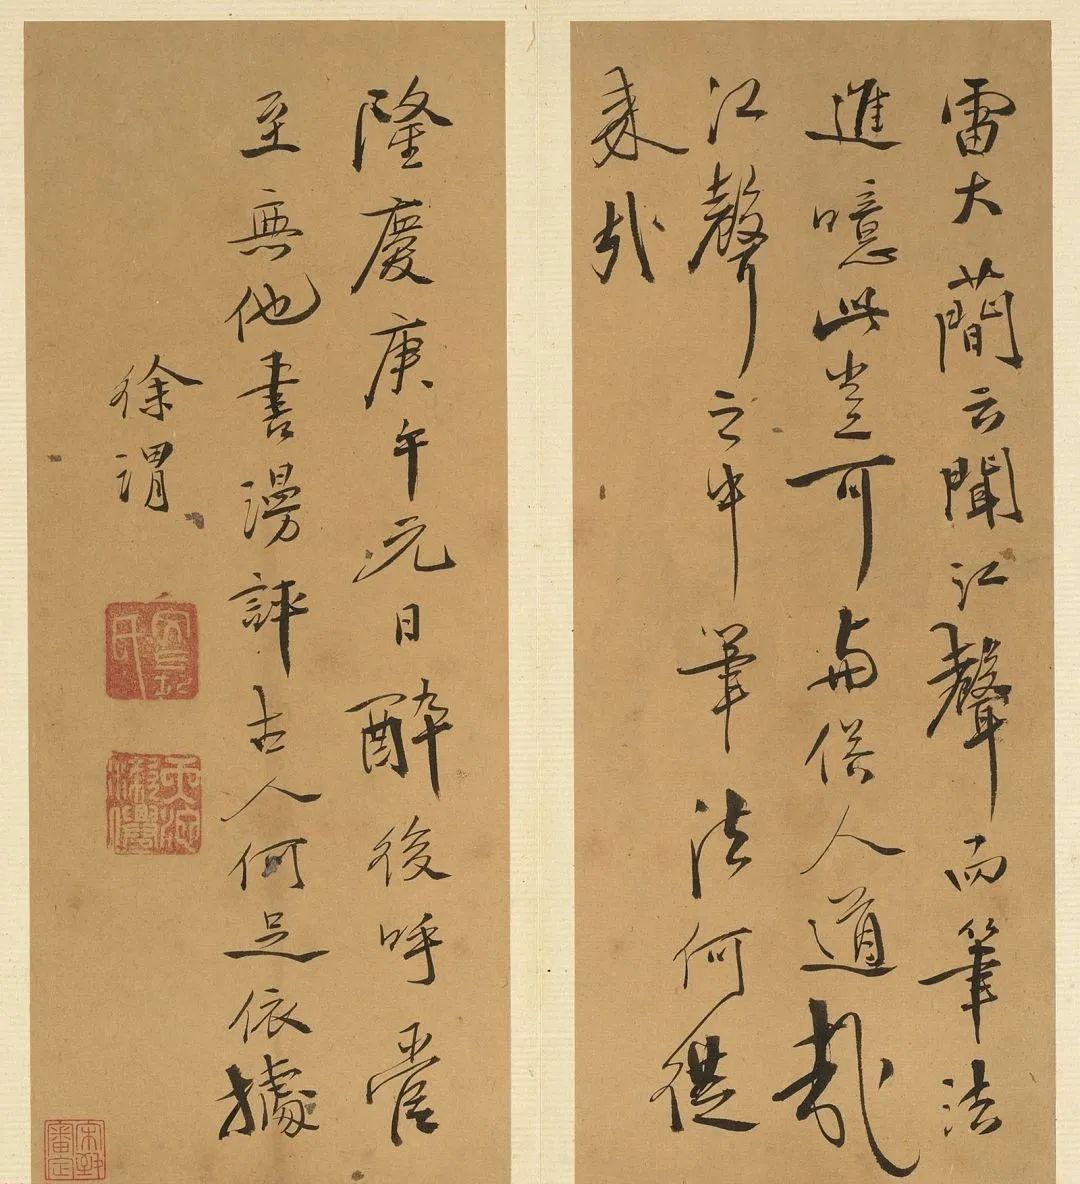 雷大簡云聞江聲而筆法
進噫此豈可與俗人道哉
江聲之中筆法何從
來哉
隆慶庚午元日醉後呼管
至無他書漫評古人何足依據
徐渭